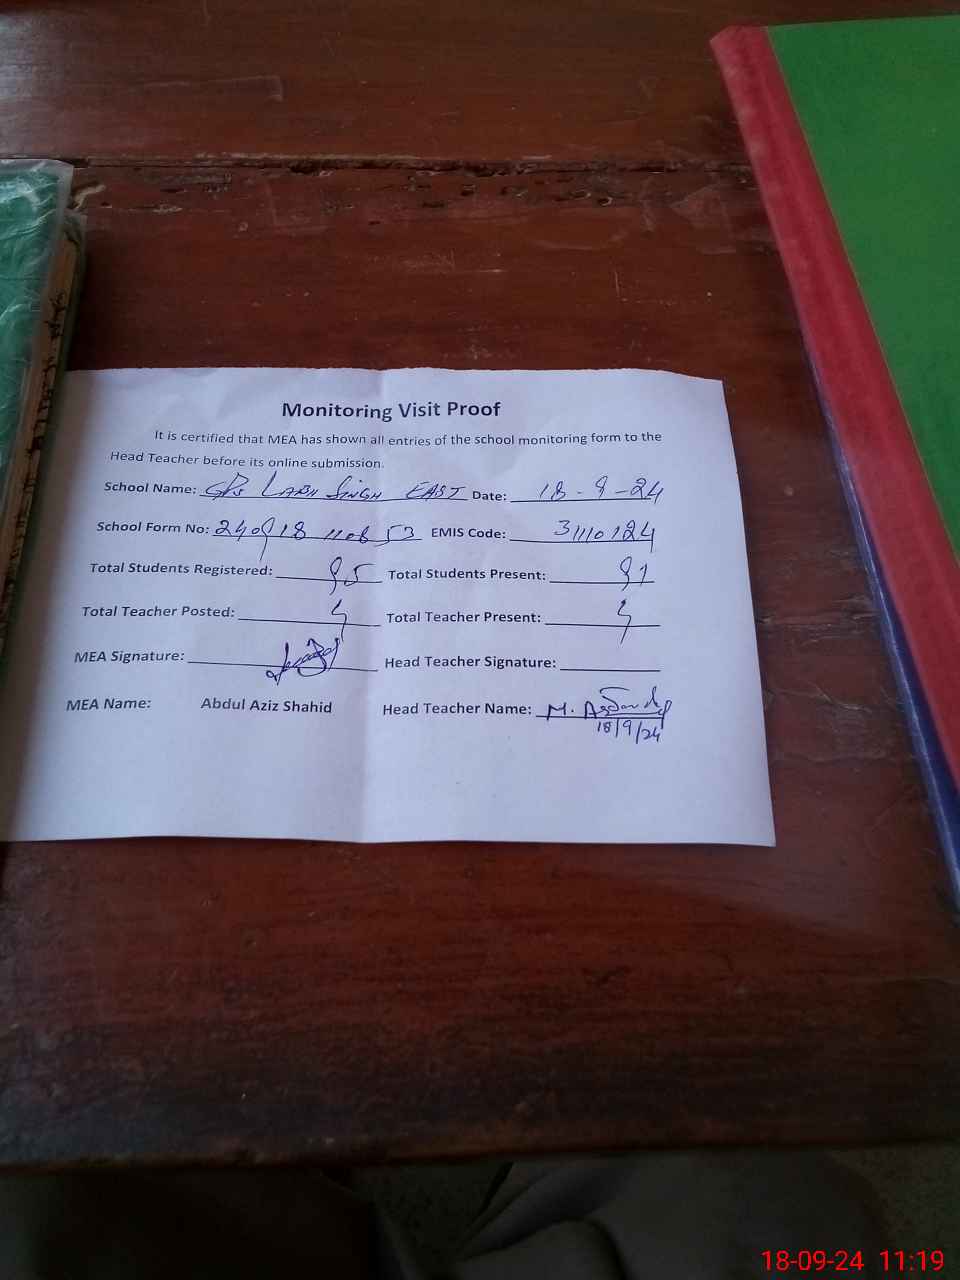 Monitoring Visit Proof
It is certified that MEA has shown all entries of the school monitoring form to the
Head Teacher before its online submission.
School Name: GPS LABH SINGH EAST Date: 18-9-24
School Form No: 240918 110653 EMIS Code: 31110124
Total Students Registered: 95 Total Students Present: 91
Total Teacher Posted: 4 Total Teacher Present: 4
MEA Signature: Head Teacher Signature:
MEA Name: Abdul Aziz Shahid Head Teacher Name: M.
18/9/24
18-09-24 11:19